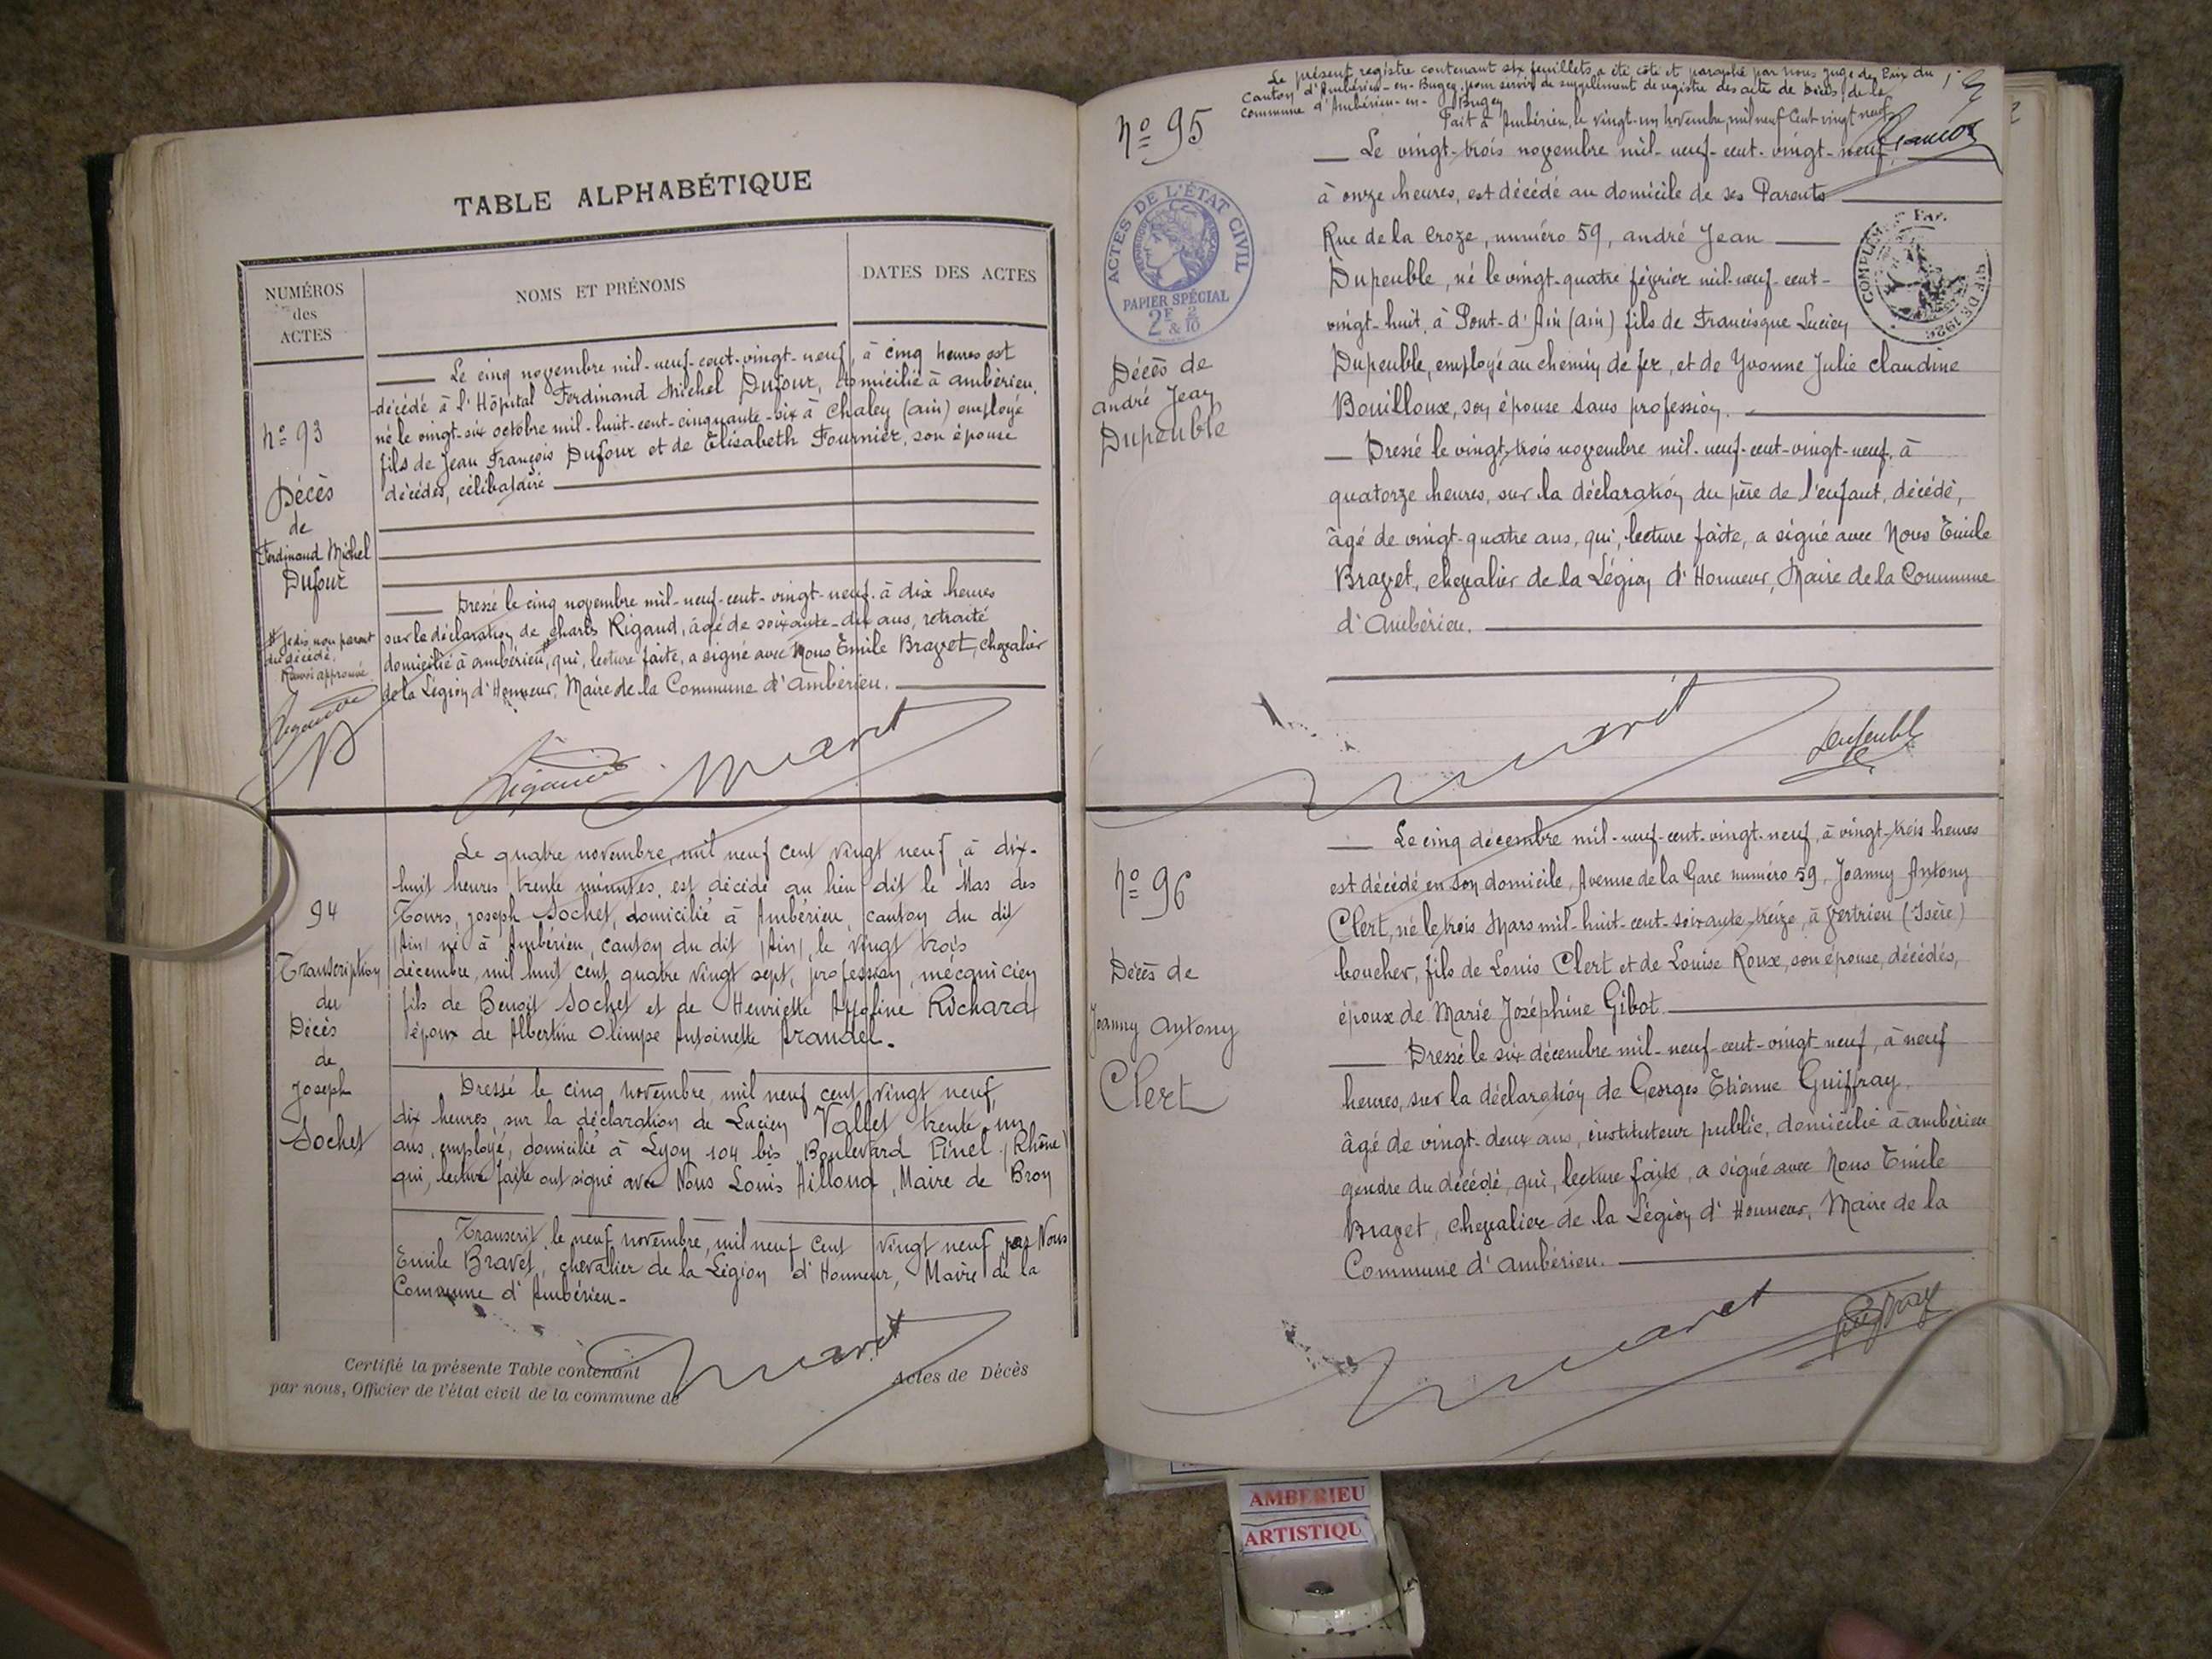 TABLE ALPHABÉTIQUE
NUMÉROS
des
ACTES
NOMS ET PRÉNOMS
DATES DES ACTES
nº 93
Décès
de
Ferdinand Michel
Dufour
# Je dis non parent
du décédé.
Renvoi approuvé
Le cinq novembre mil-neuf-cent-vingt-neuf, à cinq heures est
décédé à l'Hôpital Ferdinand Michel Dufour, domicilié à ambérieu,
né le vingt-six octobre mil-huit-cent-cinquante-six à Chaley (ain) employé
fils de Jean François Dufour et de Elisabeth Fournier, son épouse
décédés, célibataire
Dressé le cinq novembre mil-neuf-cent-vingt-neuf à dix heures
sur la déclaration de Charles Rigaud, âgé de soixante-dix ans, retraité
domicilié à ambérieu # qui, lecture faite, a signé avec Nous Emile Bravet, chevalier
de la Légion d'Honneur, Maire de la Commune d'ambérieu.
Bravet
94
Transcription
du
Décès
de
Joseph
Sochet
Le quatre novembre, mil neuf cent vingt neuf, à dix-
huit heures, trente minutes, est décédé au lieu dit le Mas des
Tours, Joseph Sochet, domicilié à Ambérieu, canton du dit
(Ain) né à Ambérieu, canton du dit (Ain), le vingt trois
décembre, mil huit cent quatre vingt sept, profession, mécanicien
fils de Benoit Sochet et de Henriette Richard
époux de Albertine Olimpe Antoinette Prandel.
Dressé le cinq novembre, mil neuf cent vingt neuf,
dix heures, sur la déclaration de Lucien Vallet trente un
ans, employé, domicilié à Lyon 104 bis Boulevard Pinel (Rhône)
qui, lecture faite ont signé avec Nous Louis Ailloud, Maire de Bron
Transcrit, le neuf novembre, mil neuf cent vingt neuf par Nous
Emile Bravet, chevalier de la Légion d'Honneur, Maire de la
Commune d'Ambérieu.
Bravet
Certifié la présente Table contenant
Actes de Décès
par nous, Officier de l'état civil de la commune de
Le présent registre contenant six feuillets a été coté et paraphé par nous Juge de Paix du
Canton d'Ambérieu-en-Bugey pour servir de supplément de registre des acte de Décès de la
commune d'Ambérieu-en-Bugey
Fait à Ambérieu, le vingt-un novembre, mil neuf Cent vingt neuf
nº 95
ACTES DE L'ÉTAT CIVIL
PAPIER SPÉCIAL
2F & 2/10
Décès de
andré Jean
Dupeuble
Le vingt-trois novembre mil-neuf-cent-vingt-neuf,
à onze heures, est décédé au domicile de ses Parents
Rue de la Croze, numéro 59, andré Jean
Dupeuble, né le vingt-quatre février mil-neuf-cent-
vingt-huit, à Pont-d'Ain (ain) fils de Francisque Lucien
Dupeuble, employé au chemin de fer, et de Yvonne Julie Claudine
Bouilloux, son épouse sans profession.
Dressé le vingt-trois novembre mil-neuf-cent-vingt-neuf, à
quatorze heures, sur la déclaration du père de l'enfant, décédé,
âgé de vingt-quatre ans, qui, lecture faite, a signé avec Nous Emile
Bravet, chevalier de la Légion d'Honneur, Maire de la Commune
d'ambérieu.
Bravet
Dupeuble
nº 96
Décès de
Joanny Antony
Clert
Le cinq décembre mil-neuf-cent-vingt-neuf, à vingt-trois heures
est décédé en son domicile, Avenue de la Gare numéro 59, Joanny Antony
Clert, né le trois Mars mil-huit-cent-soixante-treize, à Vertrieu (Isère)
boucher, fils de Louis Clert et de Louise Roux, son épouse, décédés,
époux de Marie Joséphine Gibot.
Dressé le six décembre mil-neuf-cent-vingt neuf, à neuf
heures, sur la déclaration de Georges Etienne Guiffray,
âgé de vingt-deux ans, instituteur public, domicilié à ambérieu
gendre du décédé, qui, lecture faite, a signé avec Nous Emile
Bravet, chevalier de la Légion d'Honneur, Maire de la
Commune d'ambérieu.
Bravet
AMBERIEU
ARTISTIQU